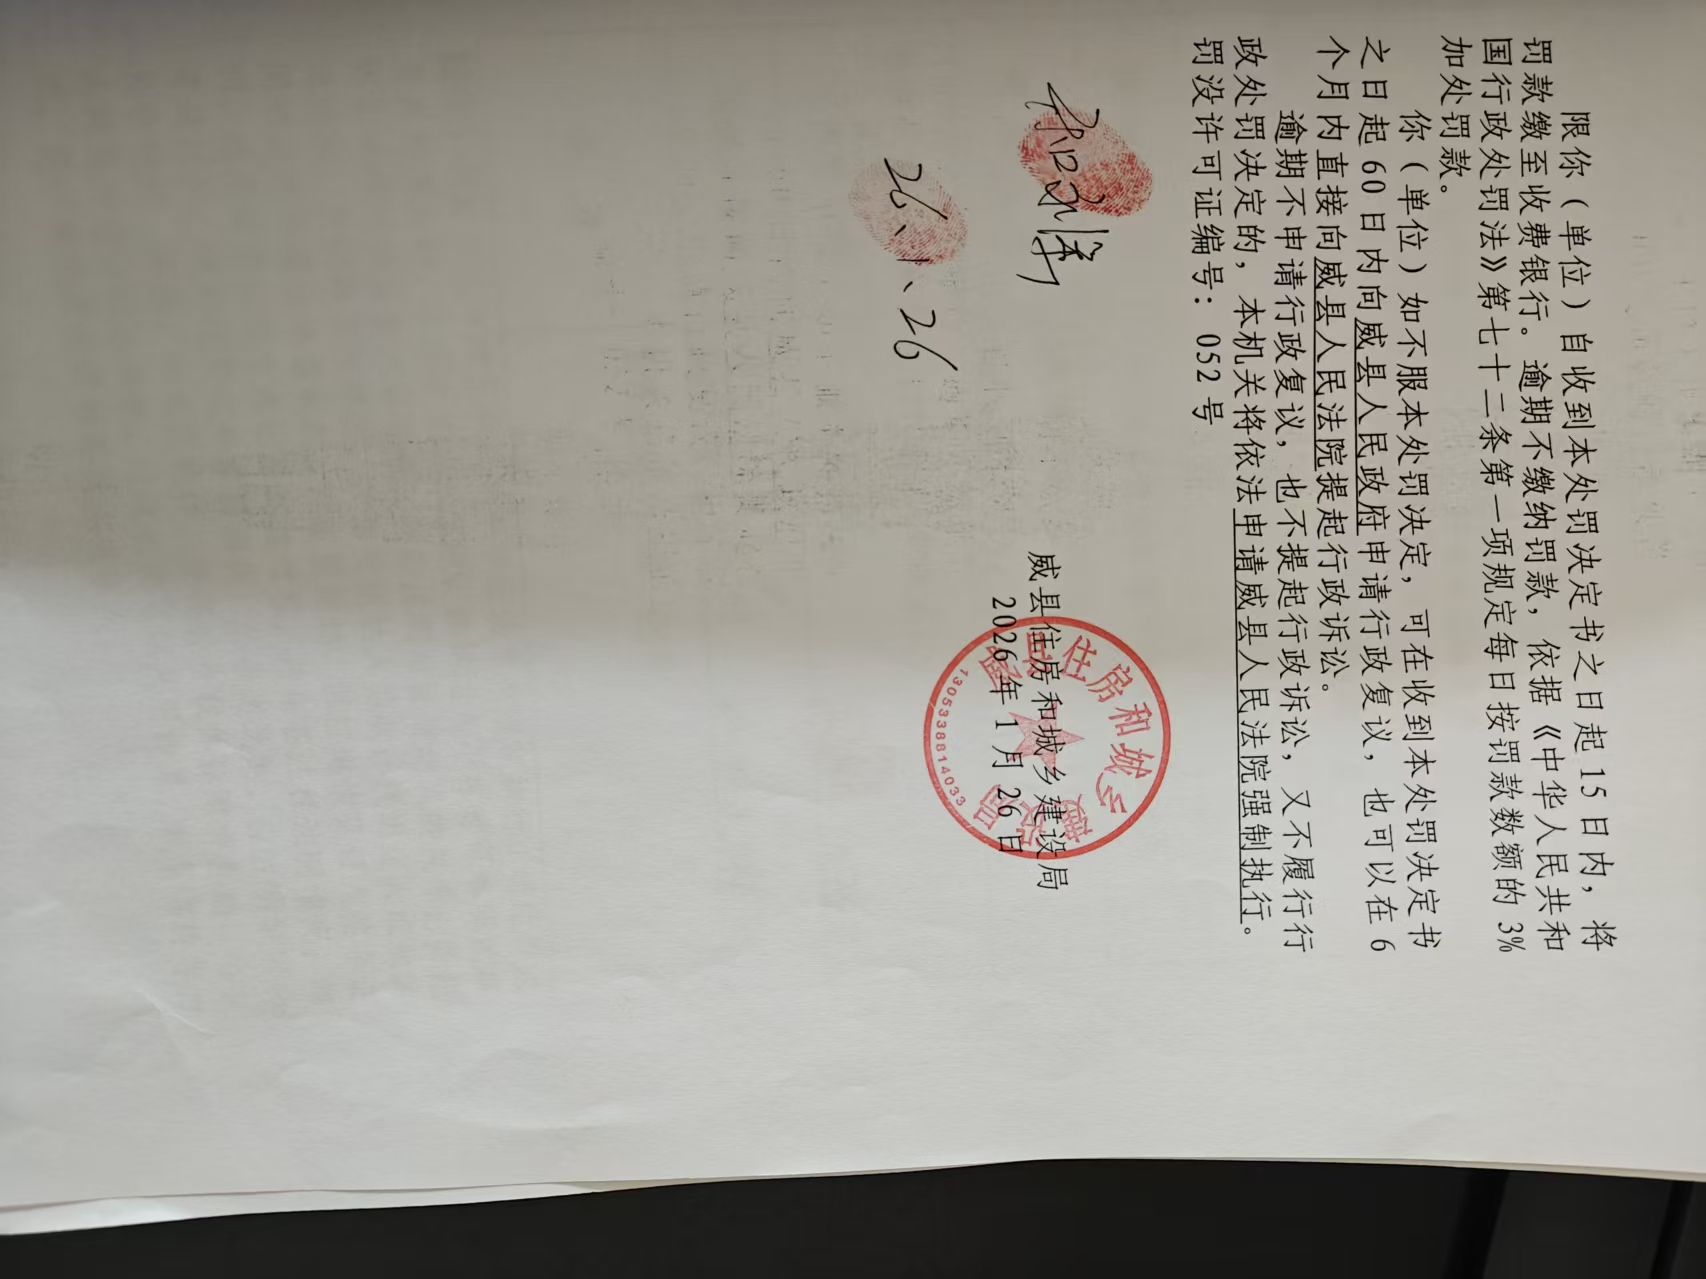 限你（单位）自收到本处罚决定书之日起 15 日内，将
罚款缴至收费银行。逾期不缴纳罚款，依据《中华人民共和
国行政处罚法》第七十二条第一项规定每日按罚款数额的 3%
加处罚款。
你（单位）如不服本处罚决定，可在收到本处罚决定书
之日起 60 日内向威县人民政府申请行政复议，也可以在 6
个月内直接向威县人民法院提起行政诉讼。
逾期不申请行政复议，也不提起行政诉讼，又不履行行
政处罚决定的，本机关将依法申请威县人民法院强制执行。
罚没许可证编号：052 号
26、1、26
威县住房和城乡建设局
2026 年 1 月 26 日
威县住房和城乡建设局
1305338814033